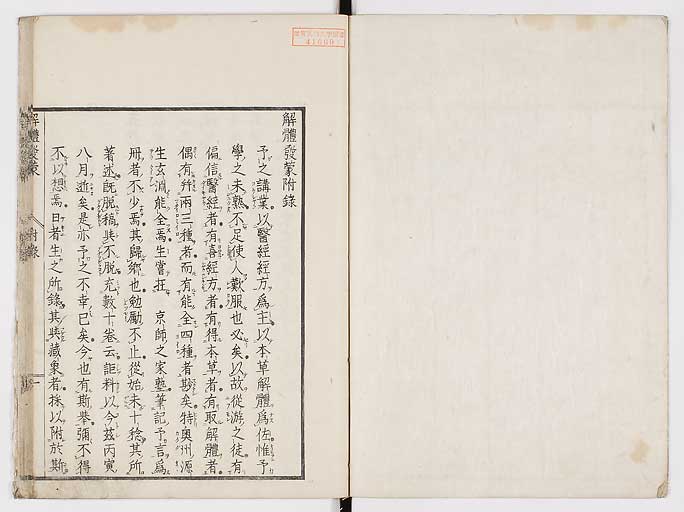 解體發蒙附錄
予之講業以醫經經方爲主以本草解體爲佐惟予
學之未熟不足使人歎服也必矣以故從游之徒有
偏信醫經者有喜經方者有得本草者有取解體者
偶有幷兩三種者而有能全四種者尠矣特奧州源
生玄淵能全焉生嘗在 京師之家塾筆記予言爲
冊者不少焉其歸鄉也勉勵不止從始未十稔其所
著述旣脫稿與不脫充數十卷云詎料以今茲丙寅
八月逝矣是亦予之不幸已矣今也有斯舉彌不得
不以想焉曰者生之所錄其與藏象者採以附於斯
解體發蒙
附錄
一